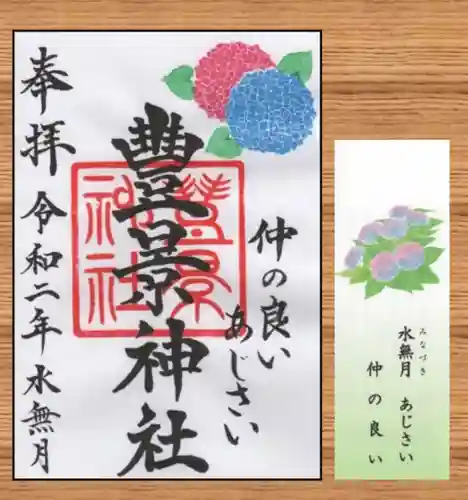 奉拝
豊景神社
豊景神社
仲の良い
あじさい
令和二年水無月
みなづき
水無月 あじさい
仲の良い